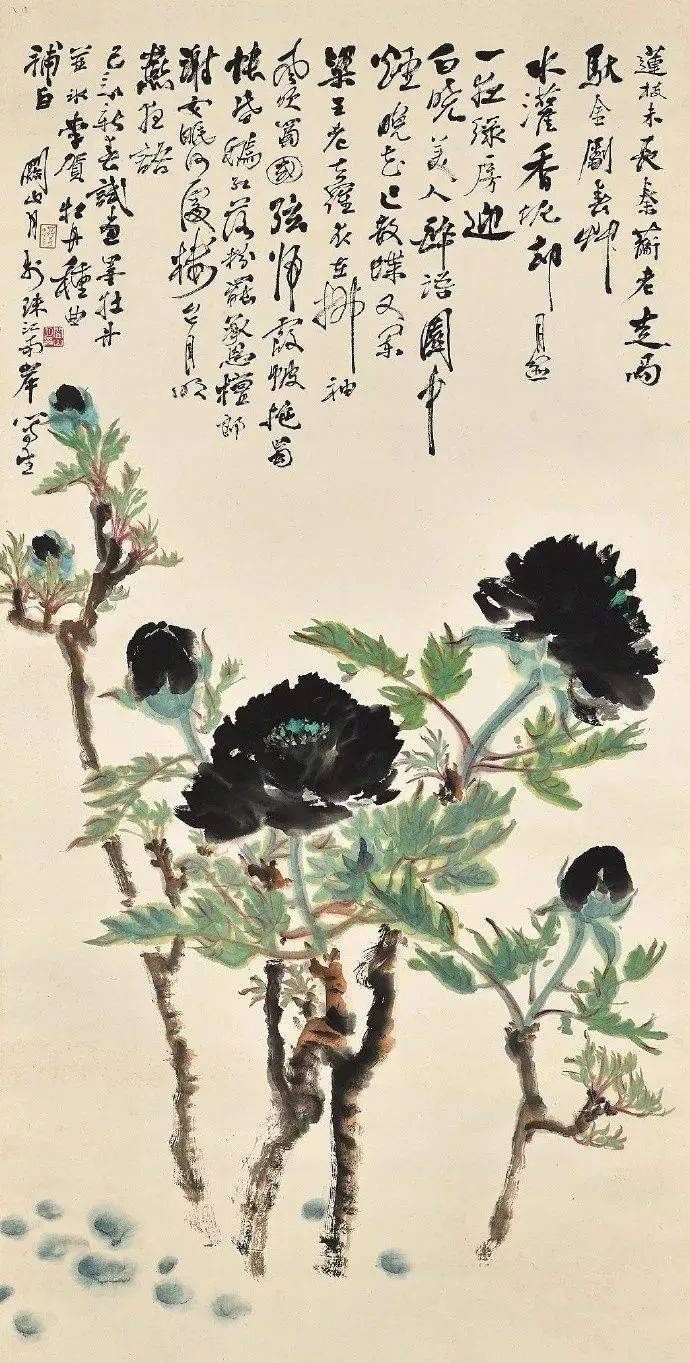 蓮枝未長秦蘅老走馬
馱金劚春艸
水灌香泥却月盤
一夜綠房迎
白曉美人醉語園中
煙晚花已散蝶又闌
梁王老去羅衣在拂袖
風吹蜀國弦歸霞帔拖蜀
帳昏嫣紅落粉罷承恩檀郎
謝女眠何處樓台月明
燕夜語
新春試畫墨牡丹
並以李賀牡丹種曲
補白 關山月於珠江南岸寫生